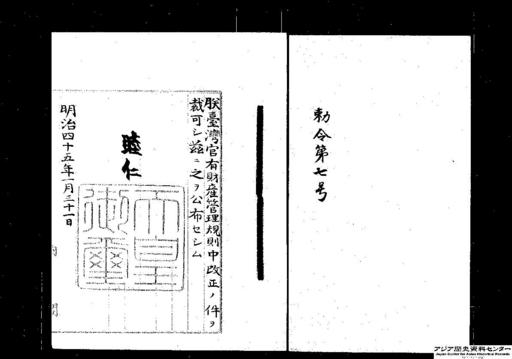 勅令第七号
朕臺灣官有財産管理規則中改正ノ件ヲ
裁可シ茲ニ之ヲ公布セシム
睦仁
天皇御璽
明治四十五年一月三十一日
内閣
アジア歴史資料センター
Japan Center for Asian Historical Records